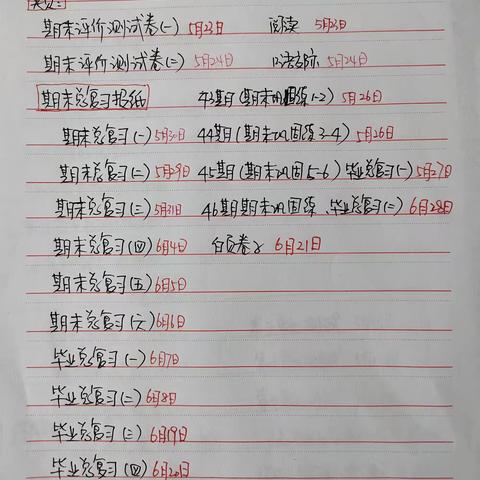 期末评价测试卷(一) 5月23日 阅读 5月23日
期末评价测试卷(二) 5月24日 口语交际 5月24日
期末总复习报纸 43期(期末巩固练1-2) 5月26日
期末总复习(一) 5月30日 44期(期末巩固练3-4) 5月26日
期末总复习(二) 5月29日 45期(期末巩固5-6) 毕业总复习(一) 5月27日
期末总复习(三) 5月31日 46期期末巩固练、毕业总复习(二) 6月28日
期末总复习(四) 6月4日 白页卷2 6月21日
期末总复习(五) 6月5日
期末总复习(六) 6月6日
毕业总复习(一) 6月7日
毕业总复习(二) 6月8日
毕业总复习(三) 6月19日
毕业总复习(四) 6月20日